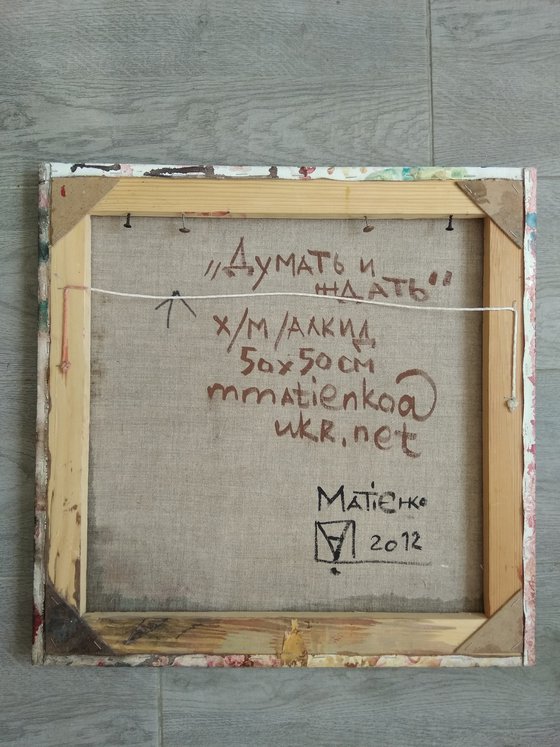 „Думать и
ждать"
х/м/алкид
50х50см
mmatienko@
ukr.net
Матієнко
2012